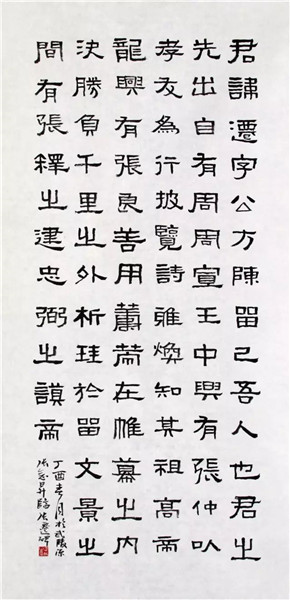 君諱遷字公方陳留己吾人也君之
先出自有周周宣王中興有張仲以
孝友為行披覽詩雅煥知其祖高帝
龍興有張良善用籌策在帷幕之内
決勝負千里之外析珪於留文景之
間有張釋之建忠弼之謨帝
丁酉春月於武陵源
臨張遷碑